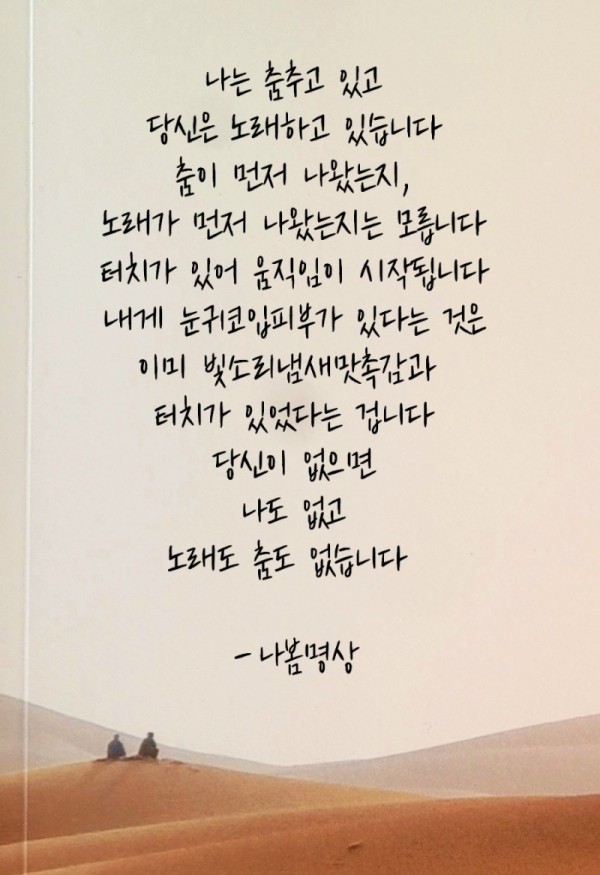 나는 춤추고 있고
당신은 노래하고 있습니다
춤이 먼저 나왔는지,
노래가 먼저 나왔는지는 모릅니다
터치가 있어 움직임이 시작됩니다
내게 눈귀코입피부가 있다는 것은
이미 빛소리냄새맛촉감과
터치가 있었다는 겁니다
당신이 없으면
나도 없고
노래도 춤도 없습니다
- 나봄명상